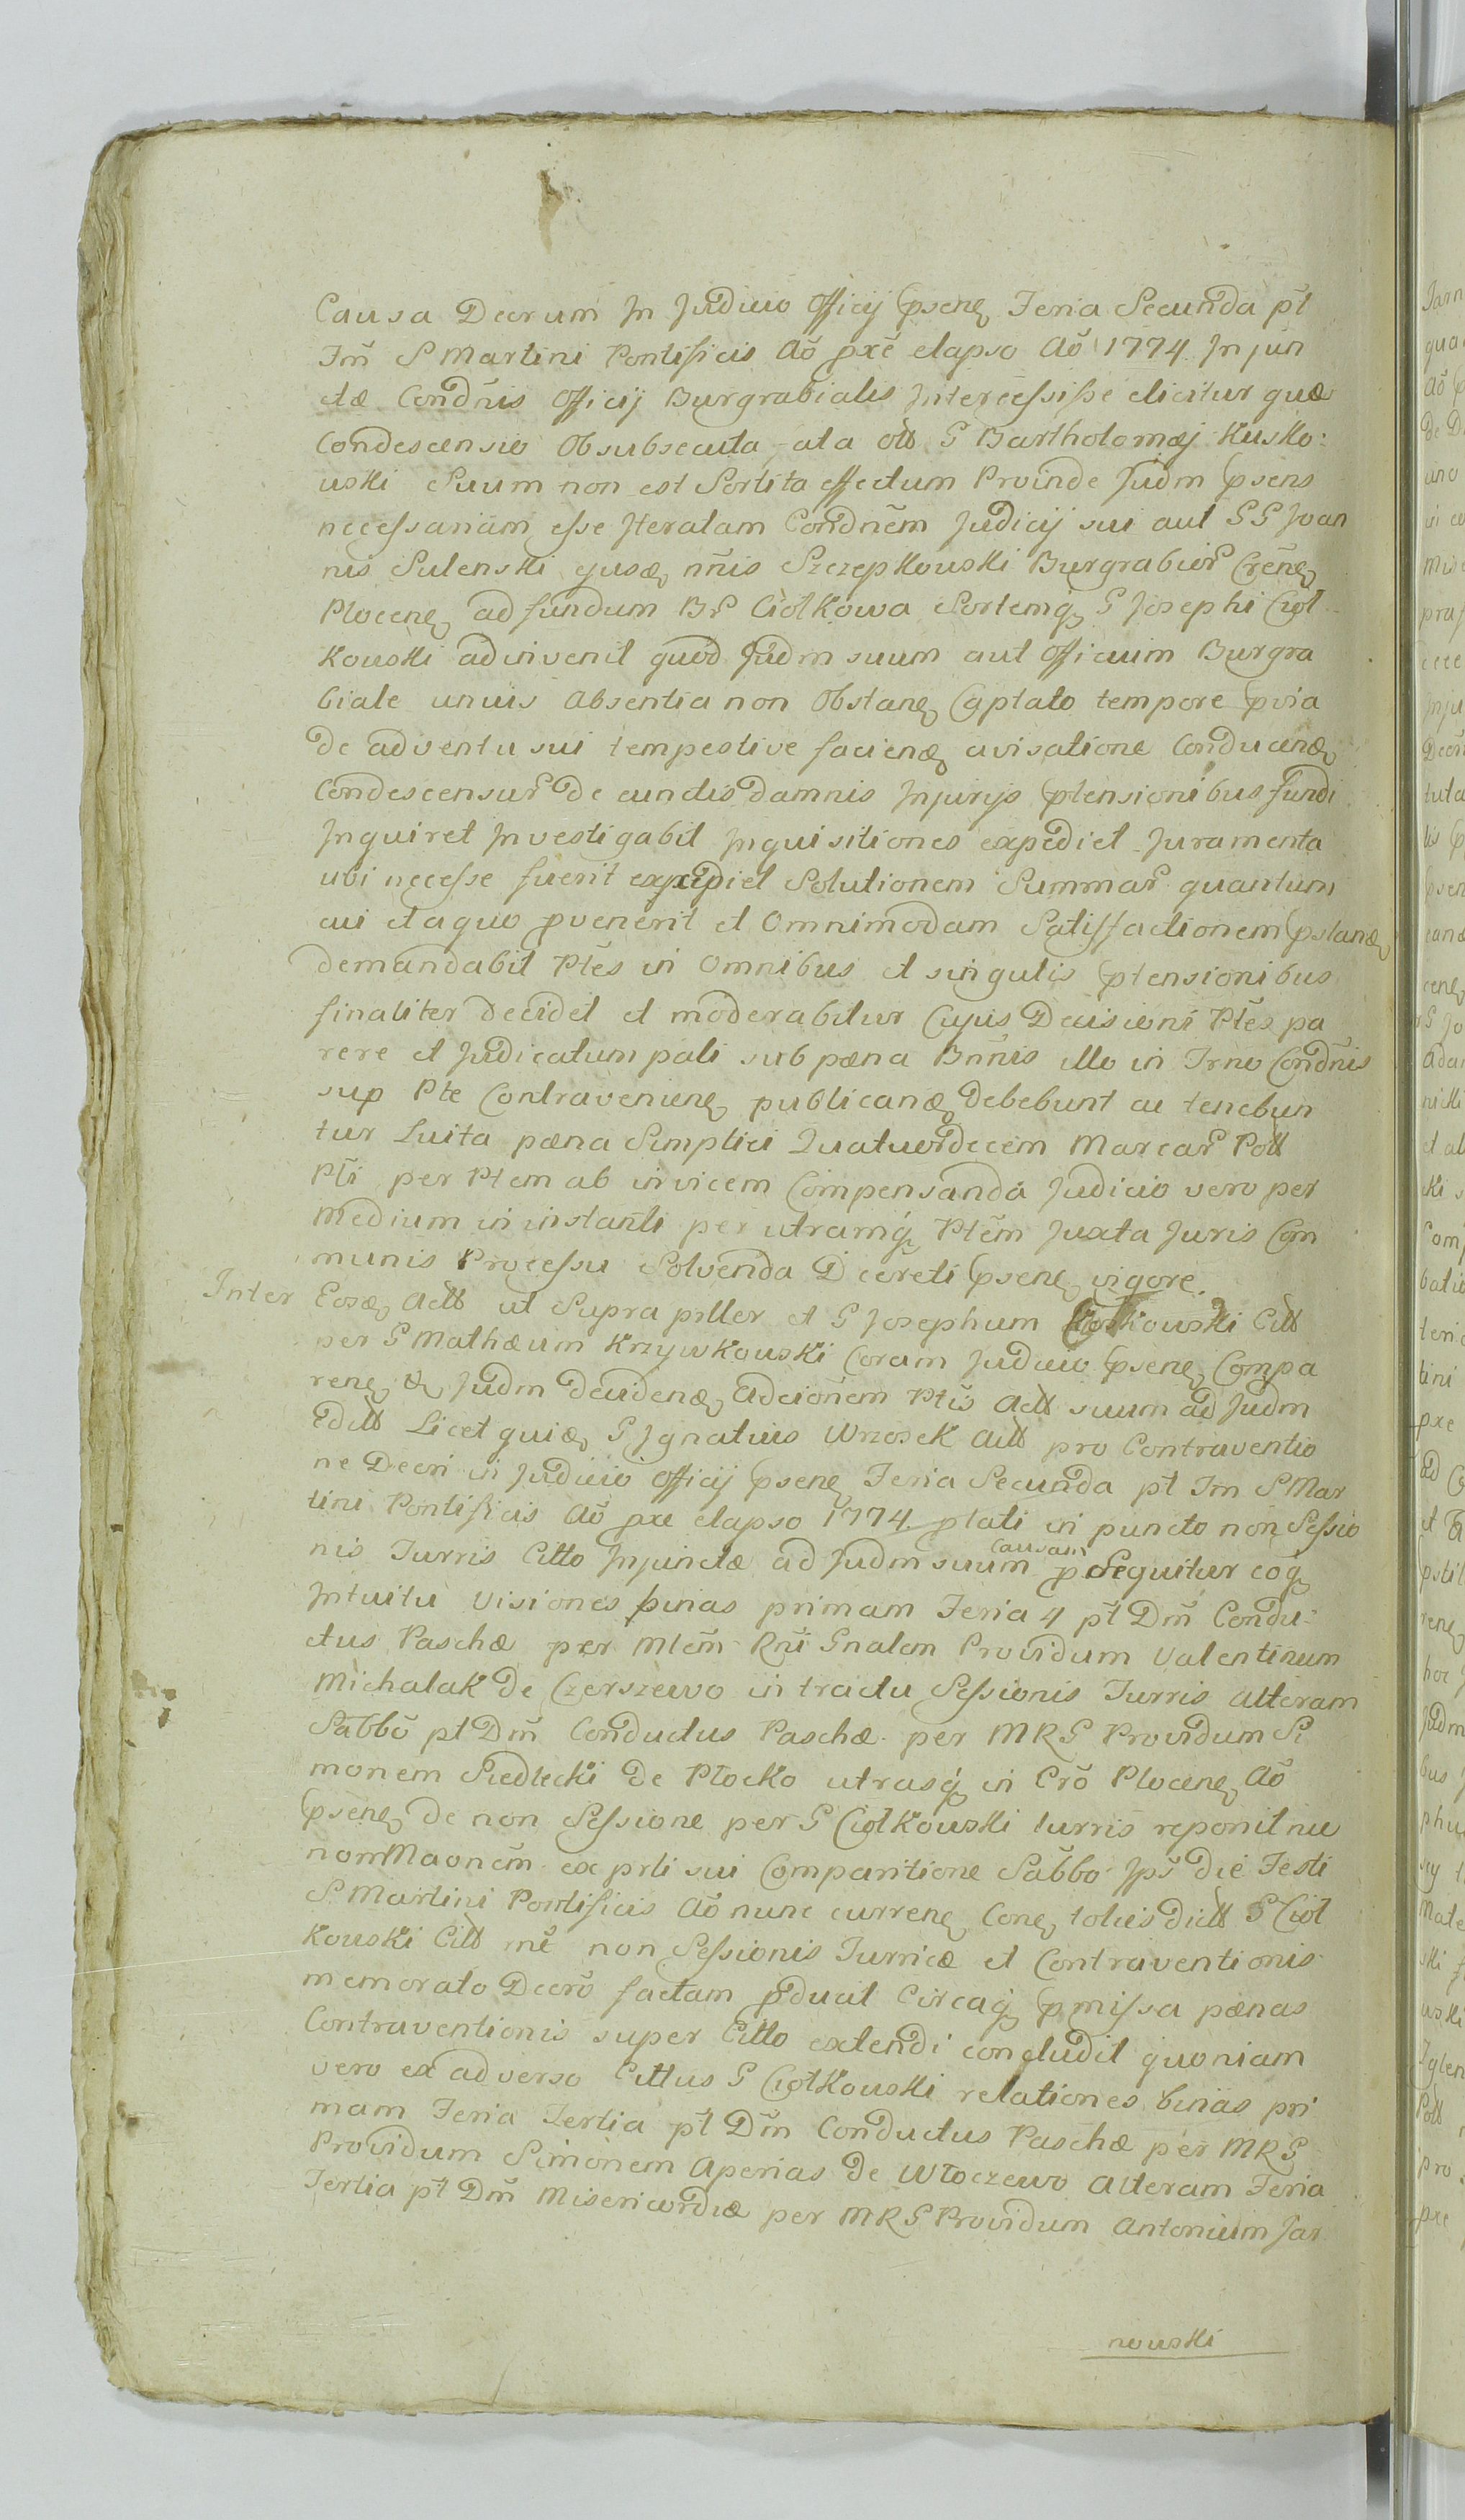 Causa Decrum In Judicio Officij psenę Feria Secunda pt
Fm̃ S Martini Pontificis Aõ pxẽ elapso Aõ 1774 In jun
ctæ Condñis Officij Burgrabialis Intercessisse elicitur quæ
Condescensio Obsubsecuta ata ołł G Bartholomæj Kusko:
wski Suum non est Sortita effectum Proinde Judm psens
necessariam esse Iteratam Condnẽm Judicij sui aut GG Joan
nis Sulenski ejusdę nñis Szczepkowski Burgrabior Crẽnę
Plocenę ad fundum Br Ciółkowa Sortemq G Josephi Cioł
kowski adinvenit quod Judm suum aut Officium Burgra
biale unius Absentia non Obstanę Captato tempore pvia
de adventu sui tempestive faciendę avisatione Conducendę
Condescensur De cunctis damnis Injurijs ptensionibus fundi
Inquiret Investigabit Inquisitiones expediet Juramenta
ubi necesse fuerit excipiet Solutionem Summar quantum
cui et a quo pvenerit et Omnimodam Satisfactionem pstandę
demandabit Ptes in Omnibus et singulis ptensionibus
finaliter decidet et moderabitur Cujus Decisioni Ptẽs pa
rere et Judicatum pati sub pæna Bnñis illo in Trno Condñis
sup Pte Contravenienę publicandę debebunt ac tenebun
tur Luita pæna Simplici Quatuordecem Marcar Połł
Pti per Ptem ab invicem Compensanda Judicio vero per
Medium in instanti per utramq Ptẽm Juxta Juris Com
munis Processu Solvenda Decreti psenę vigore.
Inter Eosdę Actł ut Supra pslter et G Josephum Ciołkowski Citł
per G Mathæum Krzywkowski Coram Judicio psenę Compa
renę & Judm decidendę Adcionem Ptis Actł suum ad Judm
Edctł Licet quidę G Ignatius Wrzosek Actł pro Contraventio
ne Decri in Judicio Officij psenę Feria Secunda pt Fm S Mar
tini Pontificis Aõ pxe elapso 1774 plati in puncto non Sessio
nis Turris Citto Injunctæ ad Judm suum Causam psequitur eoq
Intuitu Visiones binas primam Feria 4 pt Dm̃ Condu:
ctus Paschæ per Mtẽm Rni Gnalem Providum Valentinum
Michalak de Czerszewo in tractu Sessionis Turris Alteram
Sabbõ pt Dm̃ Conductus Paschæ per MRG Providum Si
monem Siedlecki de Płocko utrasq in Crõ Plocenę Aõ
psenę de non Sessione per G Ciołkowski turris reponit nec
non Maonẽm ex prti sui Comparitione Sabbo Ips die Festi
S Martini Pontificis Aõ nunc currenę Conę toties dictł G Cioł
kowski Citł mẽ non Sessionis Turricæ et Contraventionis
memorato Decrõ factam pducit Circaq pmissa pænas
Contraventionis super Citto extendi concludit quoniam
vero ex adverso Cittus G Ciołkowski relationes binas pri
mam Feria Tertia pt Dm̃ Conductus Paschæ per MRG
Providum Simonem Aperias de Włoczewo Alteram Feria
Tertia pt Dm̃ Misericordiæ per MRG Providum Antonium Jar
nowski